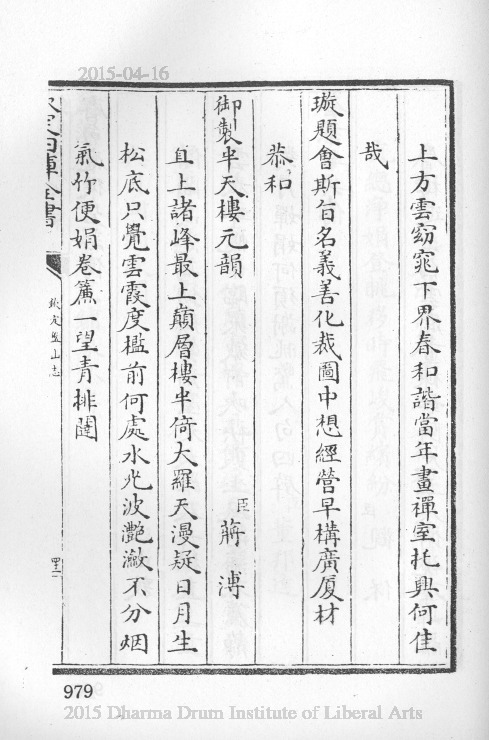 2015-04-16
上方雲窈窕下界春和諧當年畫禪室托興何佳
哉
璇題會斯旨名義善化裁圖中想經營早構廣厦材
恭和
御製半天樓元韻
臣蔣溥
直上諸峰最上巔層樓半倚大羅天漫疑日月生
松底只覺雲霞度檻前何處水光波灔潋不分烟
氣竹便娟卷簾一望青排闥
欽定四庫全書
欽定盤山志
四二
979
2015 Dharma Drum Institute of Liberal Arts